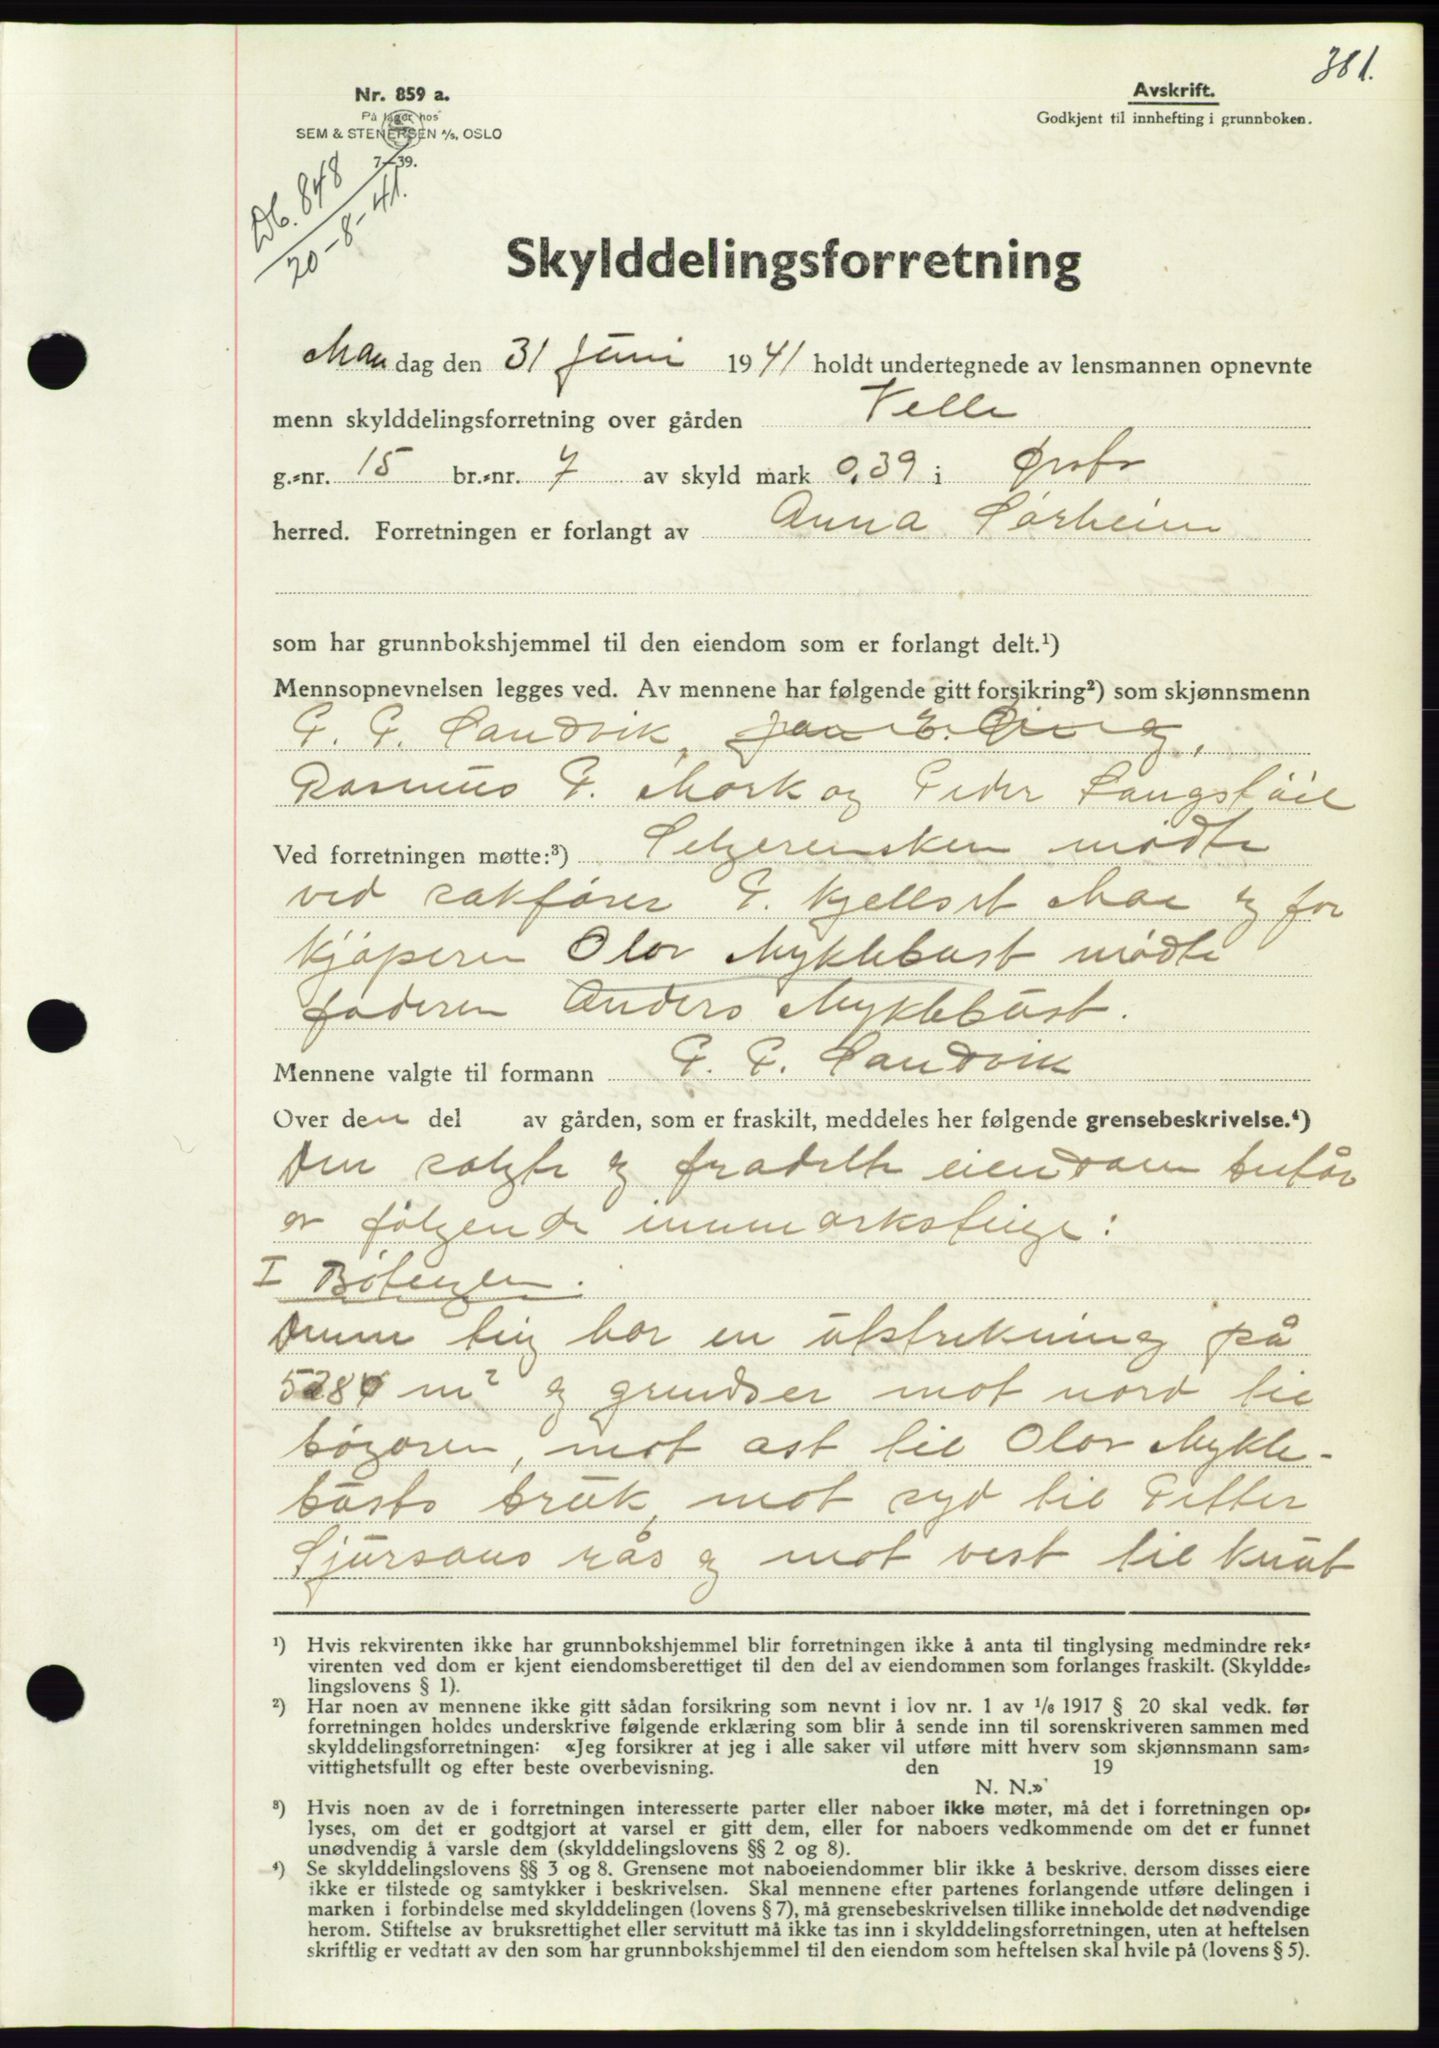 381.
Nr. 859 a.
På lager hos
SEM & STENERSEN A/S, OSLO
7—39.
Avskrift.
Godkjent til innhefting i grunnboken.
Db. 848
20-8-41.
Skylddelingsforretning
Mandag den 31 juni 1941 holdt undertegnede av lensmannen opnevnte
menn skylddelingsforretning over gården Velle
g.-nr. 15 br.-nr. 7 av skyld mark 0,39 i Ørsta
herred. Forretningen er forlangt av Anna Sørheim
som har grunnbokshjemmel til den eiendom som er forlangt delt.¹)
Mennsopnevnelsen legges ved. Av mennene har følgende gitt forsikring²) som skjønnsmenn
P. P. Sandvik,
Rasmus P. Mork og Peder Langstøil
Ved forretningen møtte:³) Selgerensken mødte
ved sakfører P. Kjellset Moe og for
kjøperen Olav Myklebust mødte
faderen Anders Myklebust.
Mennene valgte til formann P. P. Sandvik
Over den del av gården, som er fraskilt, meddeles her følgende grensebeskrivelse.⁴)
Den solgte og fradelte eiendom består
av følgende innmarksteige:
I Bøteigen.
Denne teig har en utstrekning på
m² og grendser mot nord til
bøgaren, mot øst til Olav Mykle-
busts bruk, mot syd til Petter
Sjursons rås og mot vest til Knut
¹) Hvis rekvirenten ikke har grunnbokshjemmel blir forretningen ikke å anta til tinglysing medmindre rek-
virenten ved dom er kjent eiendomsberettiget til den del av eiendommen som forlanges fraskilt. (Skyldde-
lingslovens § 1).
²) Har noen av mennene ikke gitt sådan forsikring som nevnt i lov nr. 1 av 1/8 1917 § 20 skal vedk. før
forretningen holdes underskrive følgende erklæring som blir å sende inn til sorenskriveren sammen med
skylddelingsforretningen: «Jeg forsikrer at jeg i alle saker vil utføre mitt hverv som skjønnsmann sam-
vittighetsfullt og efter beste overbevisning. den 19
N. N.»
³) Hvis noen av de i forretningen interesserte parter eller naboer ikke møter, må det i forretningen op-
lyses, om det er godtgjort at varsel er gitt dem, eller for naboers vedkommende om det er funnet
unødvendig å varsle dem (skylddelingslovens §§ 2 og 8).
⁴) Se skylddelingslovens §§ 3 og 8. Grensene mot naboeiendommer blir ikke å beskrive, dersom disses eiere
ikke er tilstede og samtykker i beskrivelsen. Skal mennene efter partenes forlangende utføre delingen i
marken i forbindelse med skylddelingen (lovens § 7), må grensebeskrivelsen tillike inneholde det nødvendige
herom. Stiftelse av bruksrettighet eller servitutt må ikke tas inn i skylddelingsforretningen, uten at heftelsen
skriftlig er vedtatt av den som har grunnbokshjemmel til den eiendom som heftelsen skal hvile på (lovens § 5).